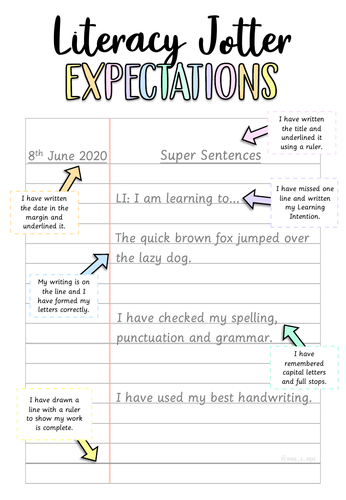 Literacy Jotter
EXPECTATIONS
I have written
the title and
underlined it
using a ruler.
8th June 2020
Super Sentences
I have written
the date in the
margin and
underlined it.
LI: I am learning to...
I have missed one
line and written
my Learning
Intention.
The quick brown fox jumped over
the lazy dog.
My writing is on
the line and I
have formed my
letters correctly.
I have checked my spelling,
punctuation and grammar.
I have
remembered
capital letters
and full stops.
I have drawn a
line with a ruler
to show my work
is complete.
I have used my best handwriting.